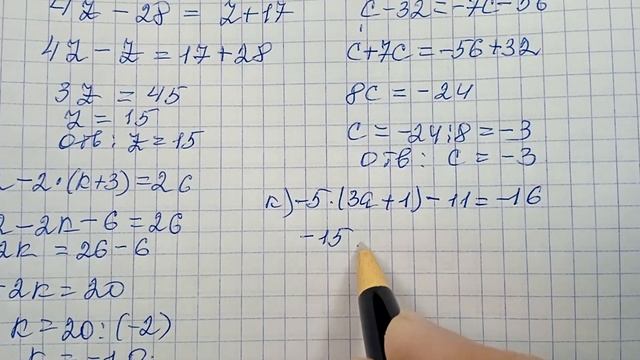 4z - 28 = z + 17
4z - z = 17 + 28
3z = 45
z = 15
отв: z = 15
-2·(к+3) = 26
2 - 2к - 6 = 26
2к = 26 - 6
-2к = 20
к = 20 : (-2)
к = -10
с - 32 = -7с - 56
с + 7с = -56 + 32
8с = -24
с = -24 : 8 = -3
отв: с = -3
к) -5·(3а + 1) - 11 = -16
-15